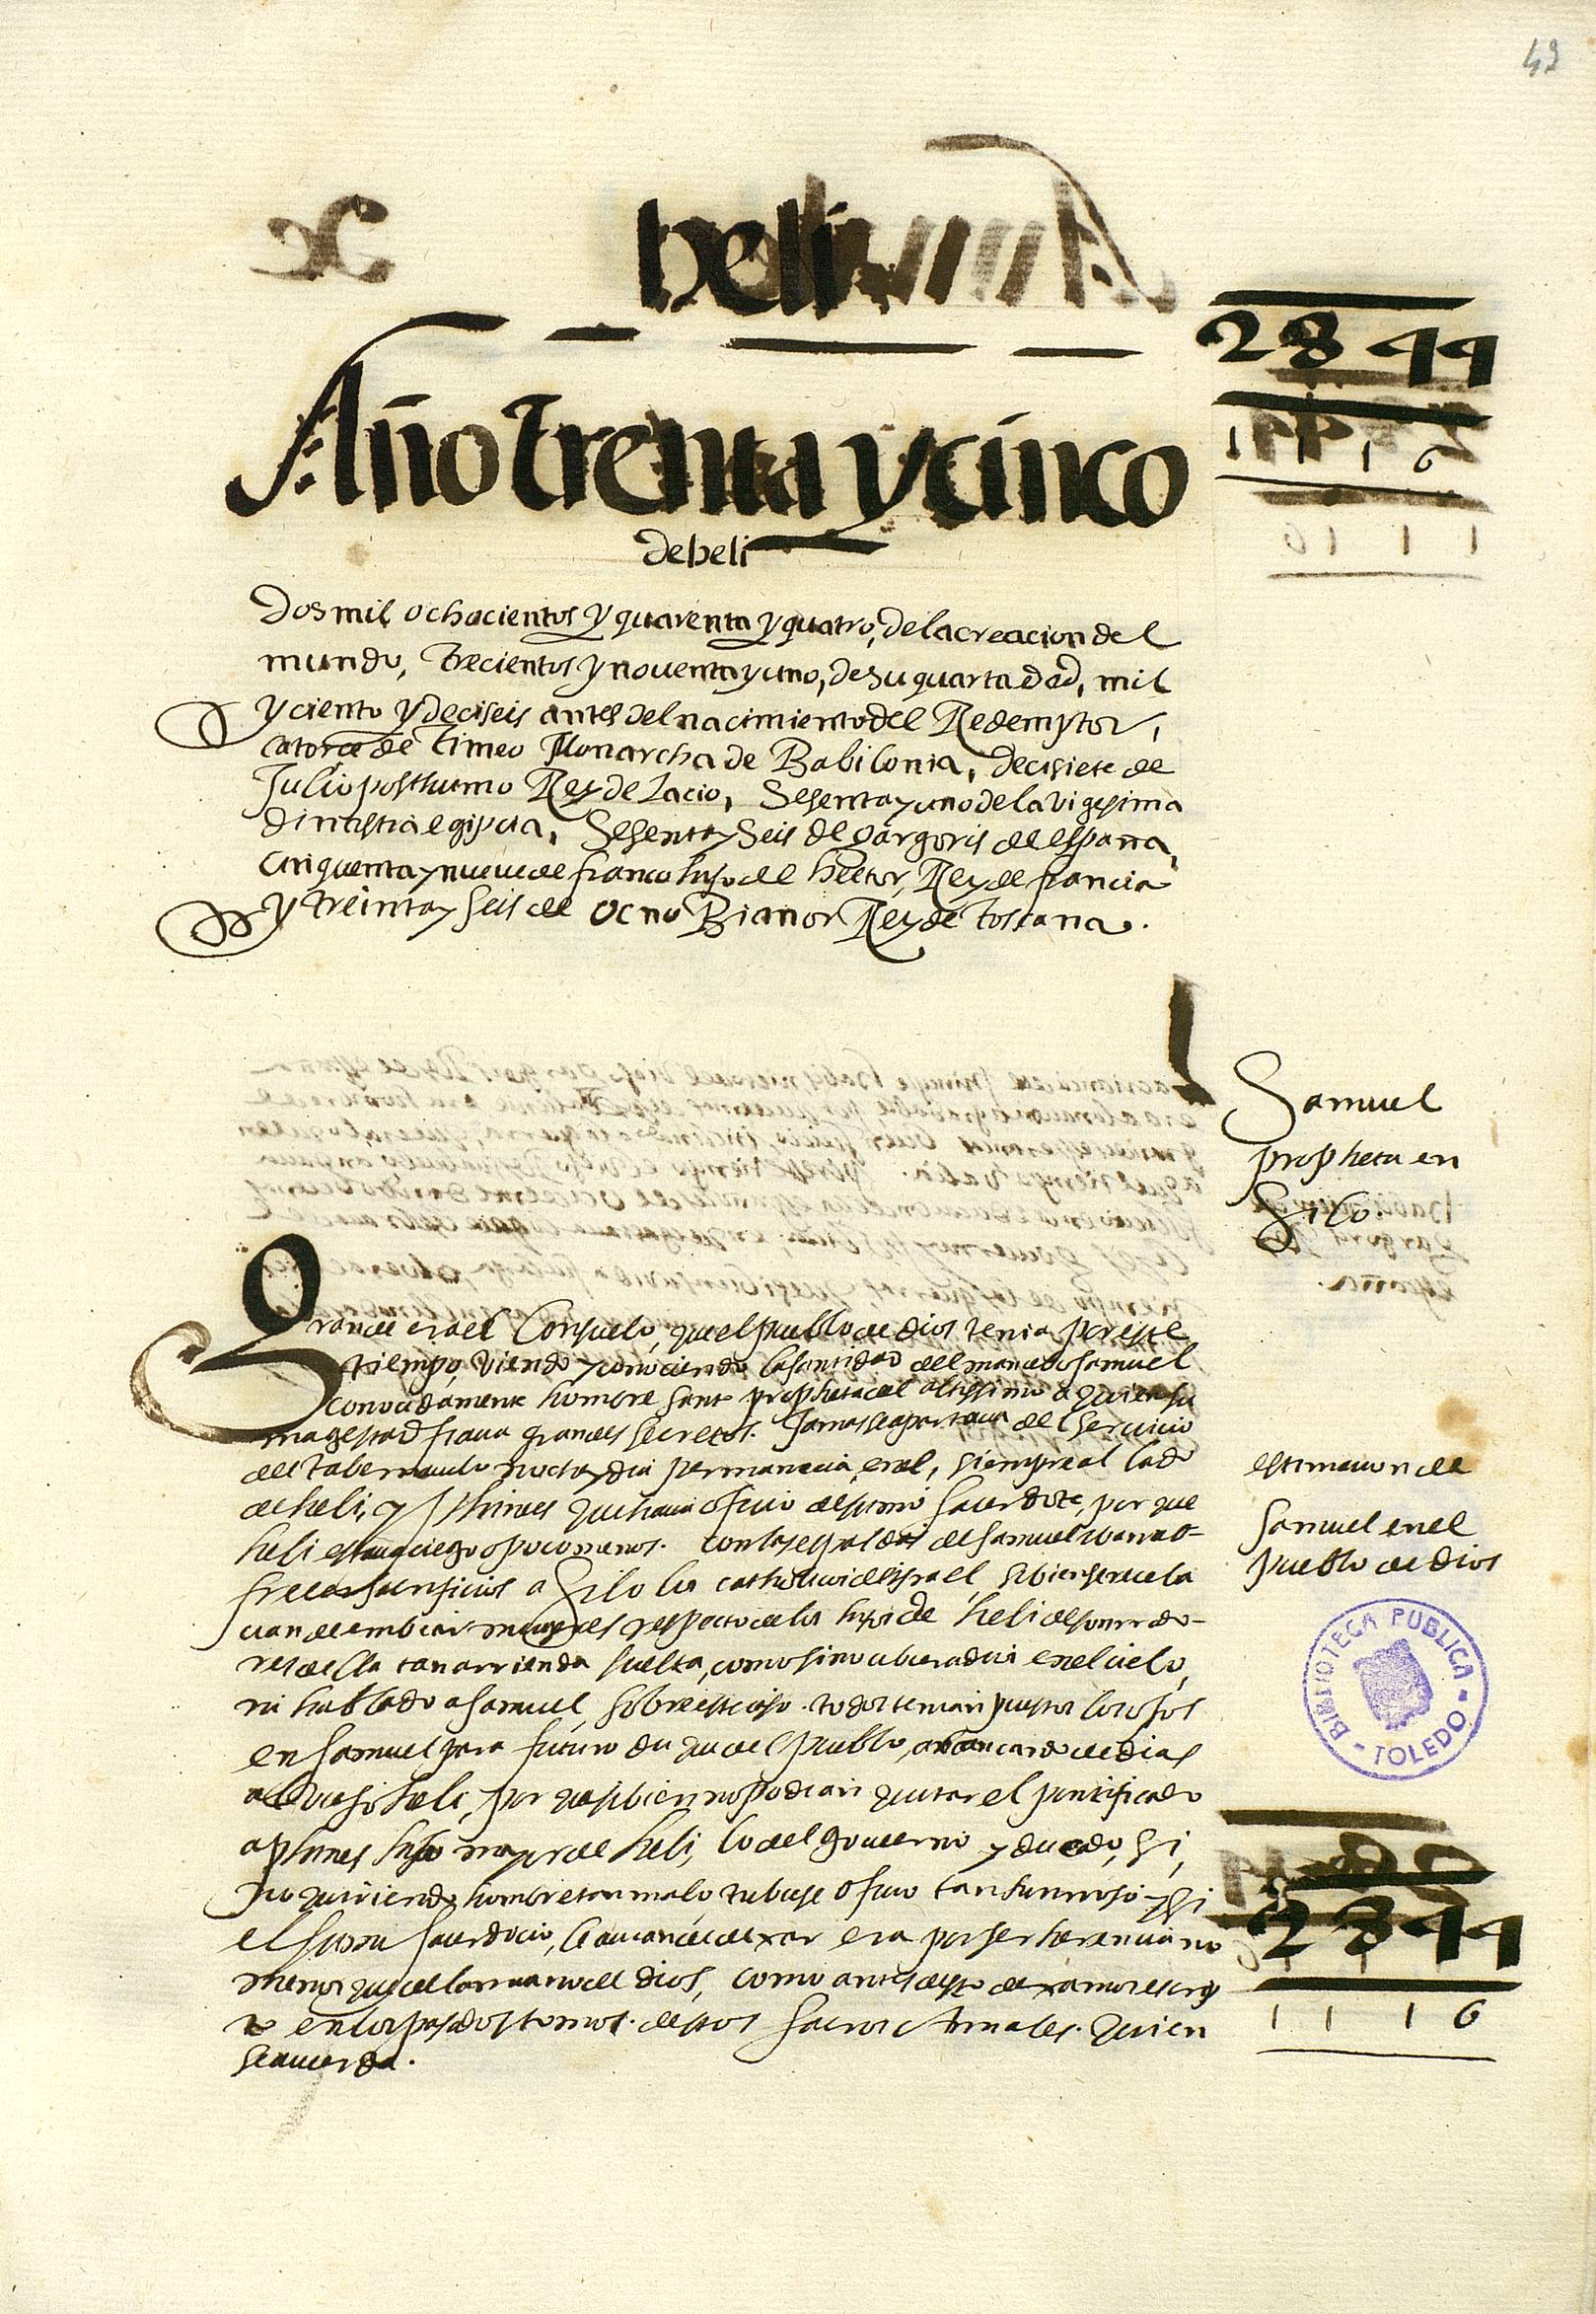 49
heli
2844
1116
Año treinta y cinco
de heli
Dos mil ochocientos y quarenta y quatro, de la creacion del
mundo, trecientos y noventa y uno, de su quarta edad, mil
y ciento y deciseis antes del nacimiento del Redemptor,
catorce de Timeo Monarcha de Babilonia, decisiete de
Julio posthumo Rey de Lacio, sesenta y uno de la vigesima
dinastia egipcia, sesenta y seis de gargoris de españa,
cinquenta y nueve de franco hijo de hector, Rey de francia
y treinta y seis de Ocno Bianor Rey de Toscana.
Samuel
propheta en
Silo.
Grande era el Consuelo, que el pueblo de dios tenia por este
tiempo, viendo y conociendo la santidad del mancebo samuel
conocidamente hombre santo propheta del altissimo a quien su
magestad fiaua grandes secretos. Jamas se apartaua del seruicio
del tabernaculo noche y dia permanecia en el, siempre al lado
de heli, y phinees que hacia oficio de sumo sacerdote, por que
heli estaua ciego o poco menos. con las espaldas de samuel
sacrificios a Silo los de israel, si bien
mugeres respecto de los hijos de heli
res della tan a rienda suelta, como si no ubiera dios en el cielo,
ni hablado a samuel, sobre este caso. todos tenian puestos los ojos
en samuel para futuro duque del pueblo, de dias
al viejo heli, por que si bien no podian quitar el pontificado
a phinees hijo mayor de heli, lo del gouierno y ducado, si,
no queriendo hombre tan malo, tubiese oficio tan y si
el sumo sacerdocio, le auian de dexar era por ser herencia no
menos que de la mano de dios, como antes desto dexamos escri
to en los pasados tomos. destos sacros Annales. quien
se acuerda.
estimacion de
samuel en el
pueblo de dios
BIBLIOTECA PUBLICA
TOLEDO
2844
1116